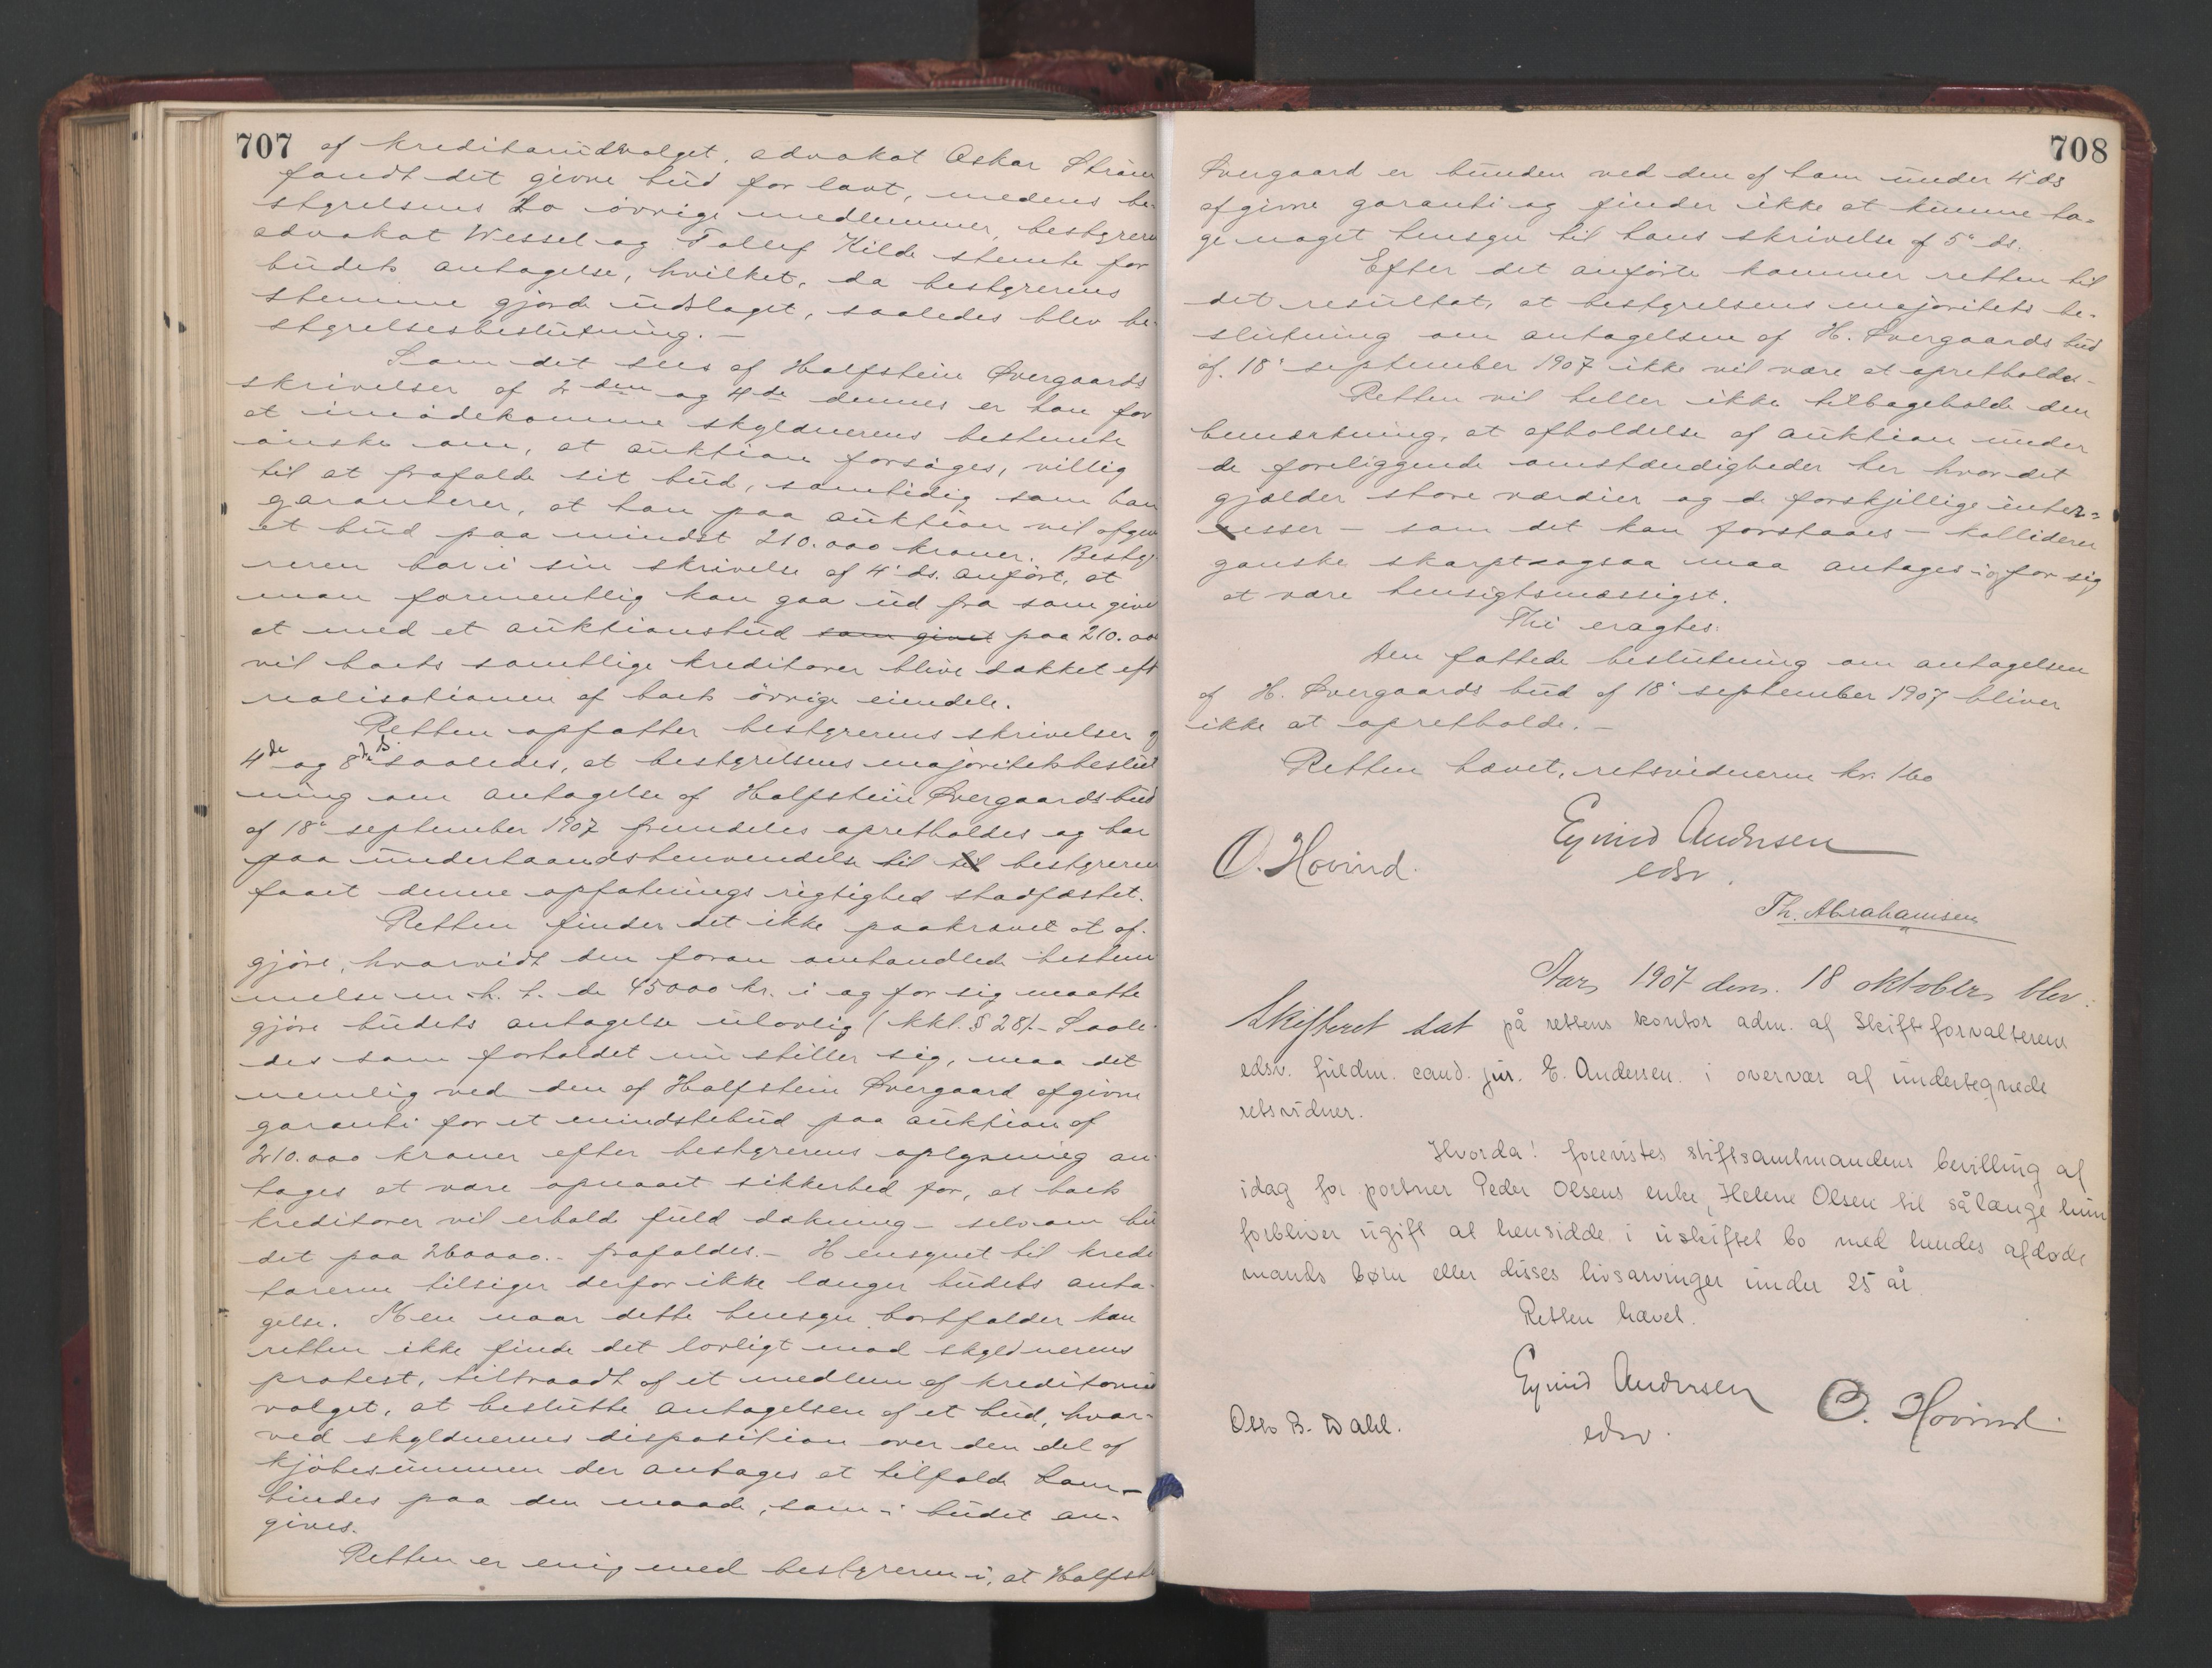 707
af kreditorudvalget, advokat Oskar Strøm
fandt det givne bud for lavt, medens be-
styrelsens to øvrige medlemmer, bestyrer
advokat Wessel og Tollef Kilde stemte for
budets antagelse, hvilket, da bestyrerens
stemme gjorde udslaget, saaledes blev be-
styrelsesbeslutning. —
Som det sees af Halfstein Øvergaards
skrivelser af 2den og 4de dennes er han for
at imødekomme skyldnerens bestemte
ønske om, at auktion forsøges, villig
til at frafalde sit bud, samtidig som han
garanterer, at han paa auktion vil afgive
et bud paa mindst 210.000 kroner. Besty-
reren har i sin skrivelse af 4' ds. anført, at
man formentlig kan gaa ud fra som givet
at med et auktionsbud som givet paa 210.000
vil boets samtlige kreditorer blive dækket eft
realisationen af boets øvrige eiendele.
Retten opfatter bestyrerens skrivelser af
4de og 8de ds. saaledes, at bestyrelsens majoritetsbeslut
ning om antagelse af Halfstein Øvergaards bud
af 18' september 1907 fremdeles opretholdes og har
paa underhaandshenvendelse til til bestyreren
faaet denne opfatnings rigtighed stadfæstet.
Retten finder det ikke paakrævet at af-
gjøre, hvorvidt den foran omhandlede bestem
melse m. h. t. de 45000 kr. i og for sig maatte
gjøre budets antagelse ulovlig (kkl. § 28). - Saale-
des som forholdet nu stiller sig, maa det
nemlig ved den af Halfstein Øvergaard afgivne
garanti for et mindstebud paa auktion af
210.000 kroner efter bestyrerens oplysning an-
tages at være opnaaet sikkerhed for, at boets
kreditorer vil erholde fuld dækning - selv om bu
det paa 260000.- frafaldes. - Hensynet til kredi
torerne tilsiger derfor ikke længer budets anta-
gelse. Men naar dette hensyn bortfalder kan
retten ikke finde det lovligt mod skyldnerens
protest, tiltraadt af et medlem af kreditorud
valget, at beslutte antagelsen af et bud, hvor-
ved skyldnerens disposition over den del af
kjøbesummen der antages at tilfalde ham -
bindes paa den maade, som i budet an-
gives.
Retten er enig med bestyreren i, at Halfste
708
Øvergaard er bunden ved den af ham under 4' ds
afgivne garanti og finder ikke at kunne ta-
ge noget hensyn til hans skrivelse af 5' ds.
Efter det anførte kommer retten til
det resultat, at bestyrelsens majoritets be-
slutning om antagelsen af H. Øvergaards bud
af 18' september 1907 ikke vil være at opretholde. -
Retten vil heller ikke tilbageholde den
bemærkning, at afholdelse af auktion under
de foreliggende omstændigheder her hvor det
gjælder store værdier og de forskjellige inter-
esser - som det kan forstaaes - kolliderer
ganske skarpt ogsaa maa antages i og for sig
at være hensigtsmæssigst.
Thi eragtes:
Den fattede beslutning om antagelsen
af H. Øvergaards bud af 18' september 1907 bliver
ikke at opretholde. -
Retten hævet, retsvidnerne kr. 1.60
Eyvind Andersen
edsv.
O. Hovind.
Th. Abrahamsen
Aar 1907 den 18 oktober blev
Skifteret sat på rettens kontor adm. af Skifteforvalterens
edsv. fuldm. cand. jur. E. Andersen i overvær af undertegnede
retsvidner.
Hvorda! forevistes stiftsamtmandens bevilling af
idag for portner Peder Olsens enke, Helene Olsen til sålænge hun
forbliver ugift at hensidde i uskiftet bo med hendes afdøde
mands børn eller disses livsarvinger under 25 år.
Retten hævet.
Eyvind Andersen
edsv.
O. Hovind.
Otto B. Dahl.